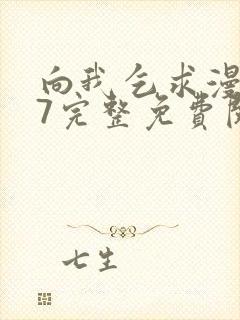 向我乞求漫
7完整免費
七生